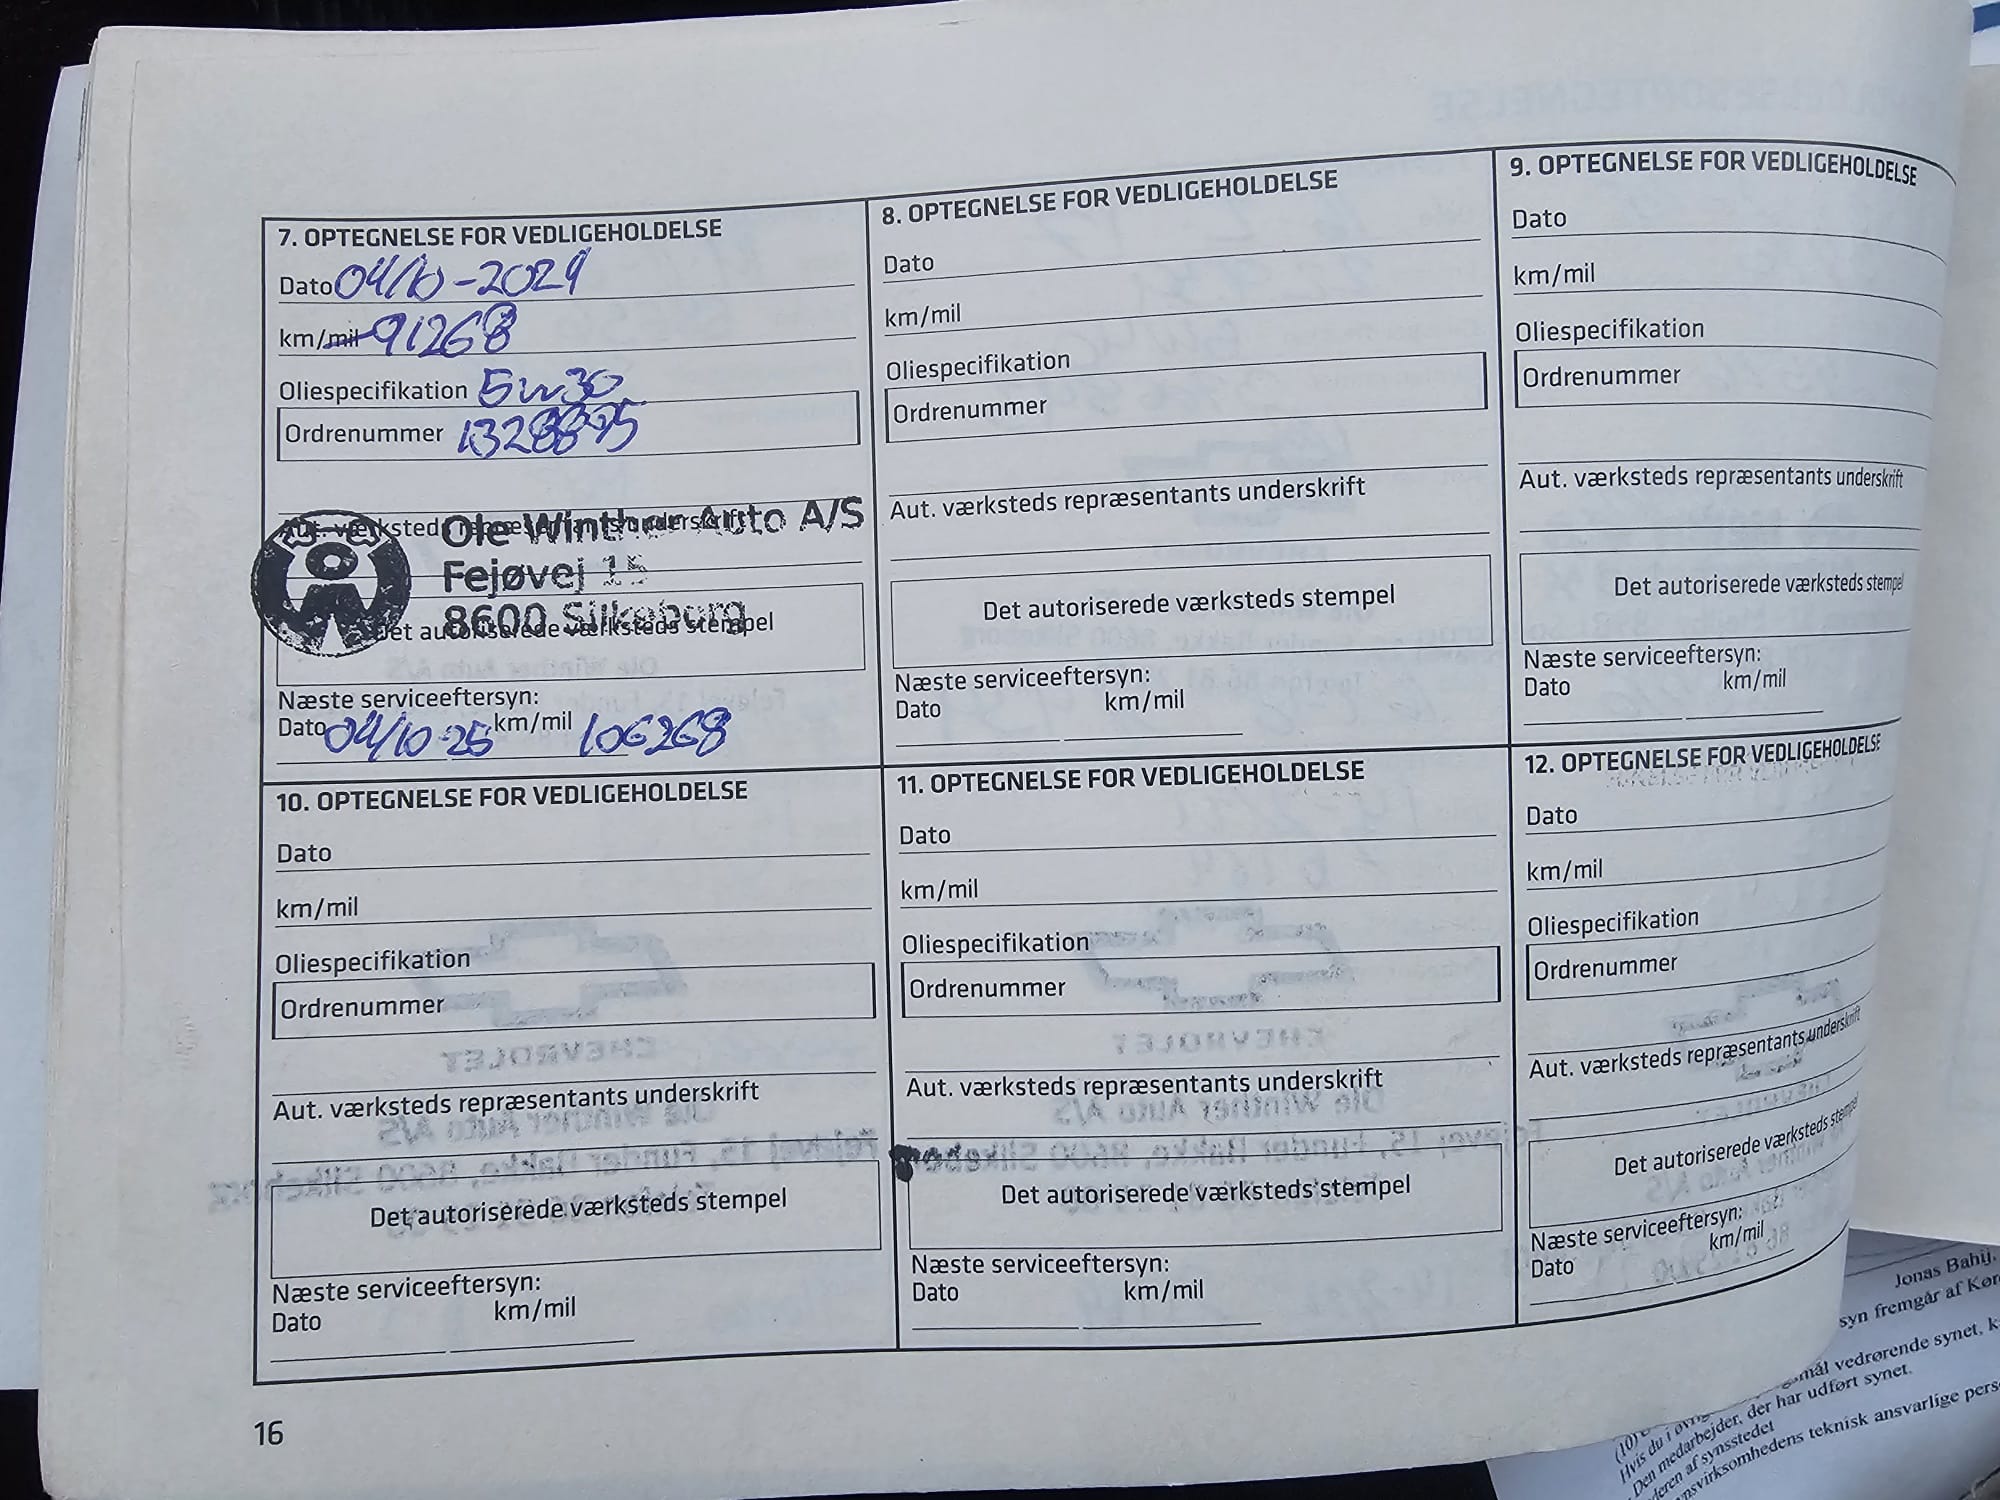 7. OPTEGNELSE FOR VEDLIGEHOLDELSE
Dato 04/10-2024
km/mil 91268
Oliespecifikation 5W30
Ordrenummer
Aut. værksteds repræsentants underskrift
Ole Winther Auto A/S
Fejøvej 15
8600 Silkeborg
Det autoriserede værksteds stempel
Næste serviceeftersyn:
Dato 04/10-25 km/mil 106268
8. OPTEGNELSE FOR VEDLIGEHOLDELSE
Dato
km/mil
Oliespecifikation
Ordrenummer
Aut. værksteds repræsentants underskrift
Det autoriserede værksteds stempel
Næste serviceeftersyn:
Dato km/mil
9. OPTEGNELSE FOR VEDLIGEHOLDELSE
Dato
km/mil
Oliespecifikation
Ordrenummer
Aut. værksteds repræsentants underskrift
Det autoriserede værksteds stempel
Næste serviceeftersyn:
Dato km/mil
10. OPTEGNELSE FOR VEDLIGEHOLDELSE
Dato
km/mil
Oliespecifikation
Ordrenummer
Aut. værksteds repræsentants underskrift
Det autoriserede værksteds stempel
Næste serviceeftersyn:
Dato km/mil
11. OPTEGNELSE FOR VEDLIGEHOLDELSE
Dato
km/mil
Oliespecifikation
Ordrenummer
Aut. værksteds repræsentants underskrift
Det autoriserede værksteds stempel
Næste serviceeftersyn:
Dato km/mil
12. OPTEGNELSE FOR VEDLIGEHOLDELSE
Dato
km/mil
Oliespecifikation
Ordrenummer
Aut. værksteds repræsentants underskrift
Det autoriserede værksteds stempel
Næste serviceeftersyn:
Dato km/mil
16
Jonas Bahij,
syn fremgår af
vedrørende synet,
(10)
Hvis du i
Den medarbejder, der har udført synet.
af synsstedet
teknisk ansvarlige